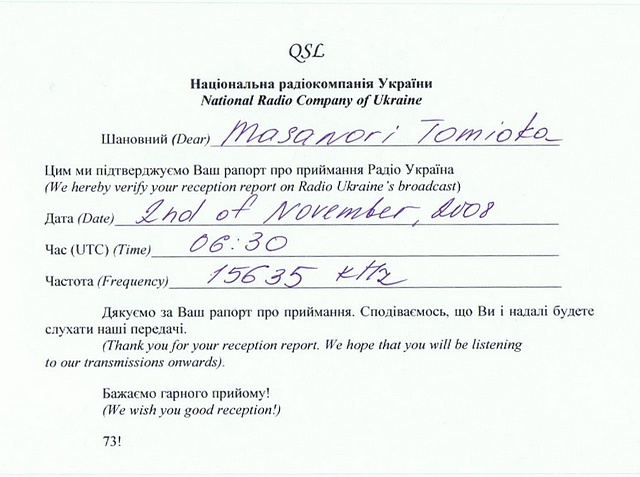 QSL
Національна радіокомпанія України
National Radio Company of Ukraine
Шановний (Dear) Masanori Tomioka
Цим ми підтверджуємо Ваш рапорт про приймання Радіо Україна
(We hereby verify your reception report on Radio Ukraine's broadcast)
Дата (Date) 2nd of November, 2008
Час (UTC) (Time) 06:30
Частота (Frequency) 15635 kHz
Дякуємо за Ваш рапорт про приймання. Сподіваємось, що Ви і надалі будете
слухати наші передачі.
(Thank you for your reception report. We hope that you will be listening
to our transmissions onwards).
Бажаємо гарного прийому!
(We wish you good reception!)
73!